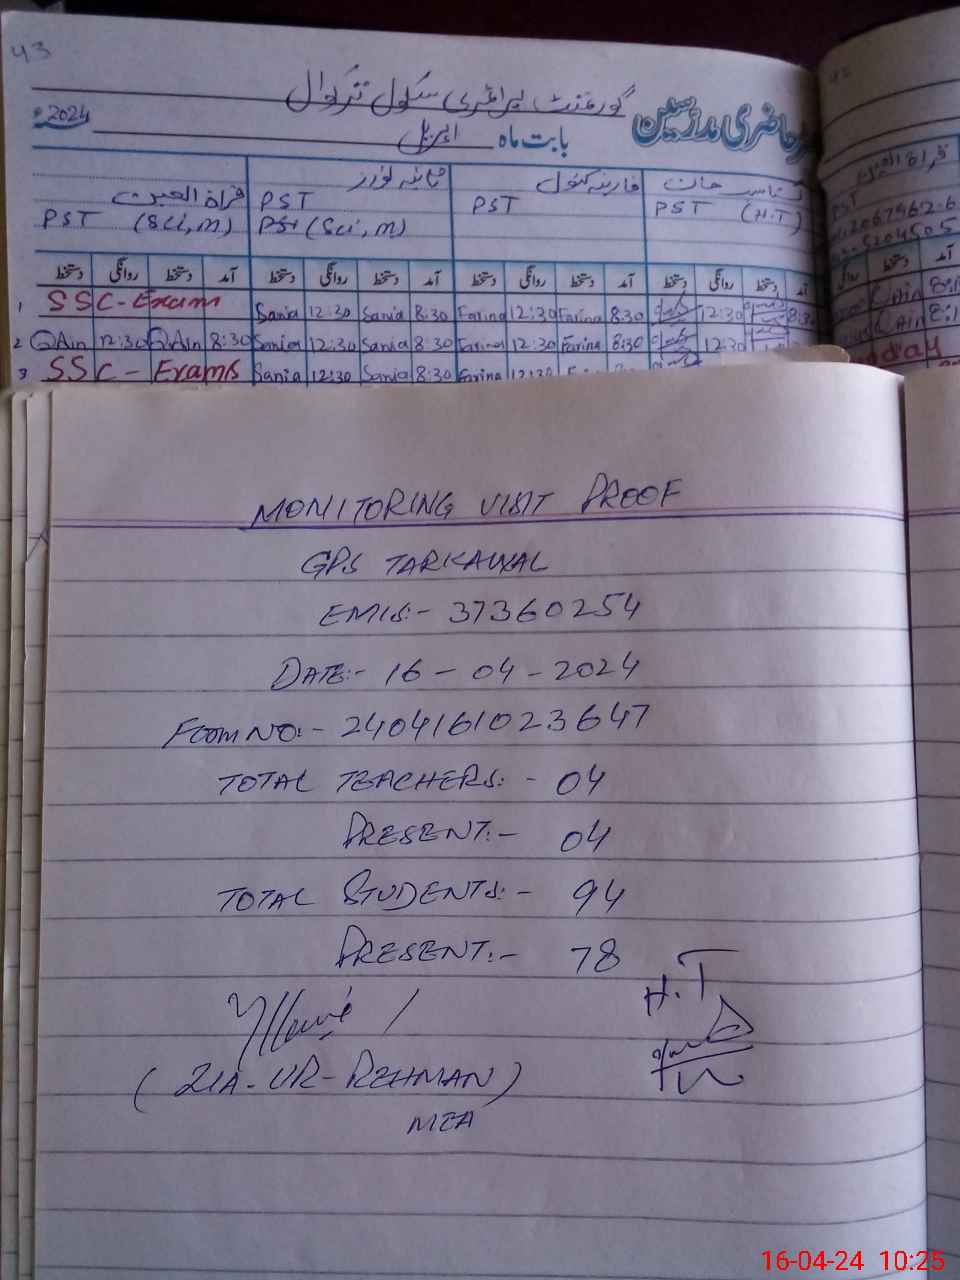 43
گورنمنٹ پرائمری سکول ترکوال
حاضری مدرسین
بابت ماہ اپریل
2024ء
قراۃ العین
PST (Sci, m)
ثانیہ
PST
PST (Sci, m)
فارینہ کنول
PST
خان
PST (H.T)
دستخط روانگی دستخط آمد دستخط روانگی دستخط آمد دستخط روانگی دستخط آمد دستخط روانگی دستخط
1 SSC-Exam Sania 12:30 Sania 8:30 Farina 12:30 Farina 8:30 12:30 8:30
2 QAin 12:30 QAin 8:30 Sania 12:30 Sania 8:30 Farina 12:30 Farina 8:30 12:30
3 SSC - Exams Sania 12:30 Sania 8:30 Farina 12:30
MONITORING VISIT PROOF
GPS TARKAWAL
EMIS:- 37360254
DATE:- 16-04-2024
FORM NO:- 2404161023647
TOTAL TEACHERS:- 04
PRESENT:- 04
TOTAL STUDENTS:- 94
PRESENT:- 78
H.T
(ZIA-UR-REHMAN)
MEA
16-04-24 10:25